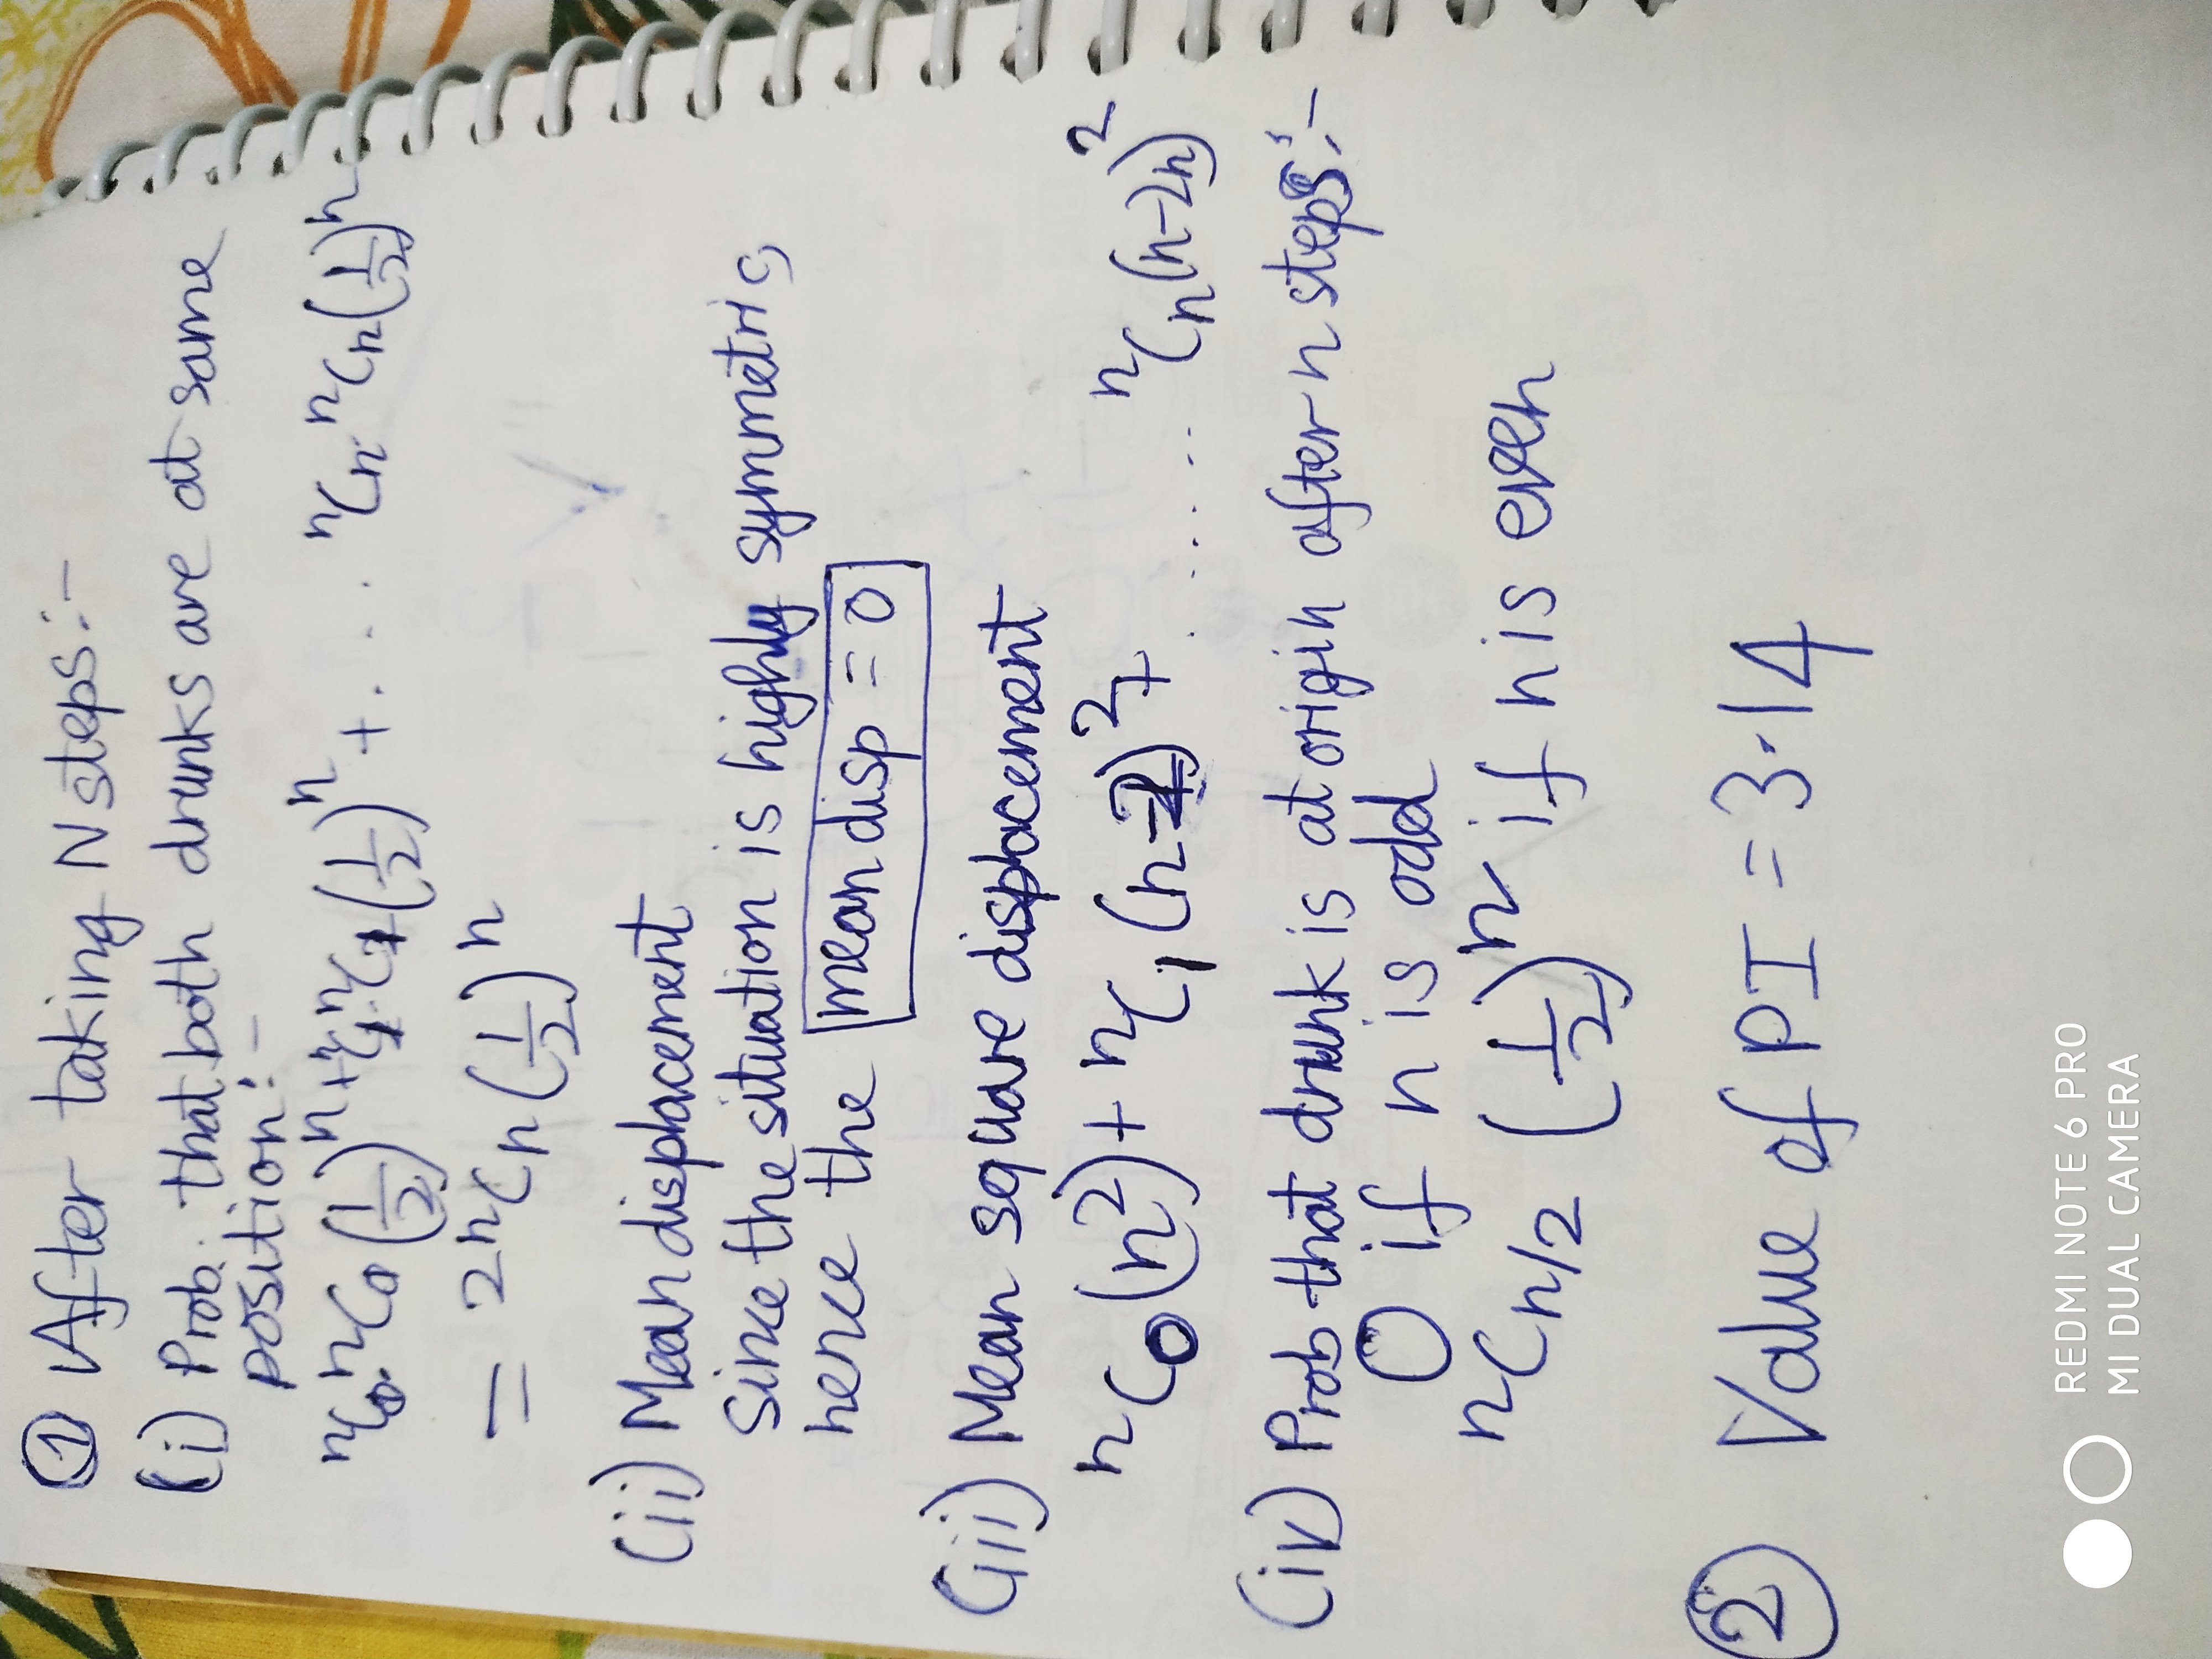 ① After taking N steps:-
(i) Prob. that both drunks are at same
position:-
ⁿC₀.ⁿC₀(1/2)ⁿ+ⁿC₁.ⁿC₁(1/2)ⁿ+.... ⁿCₙ.ⁿCₙ(1/2)ⁿ
= ²ⁿCₙ(1/2)ⁿ
(ii) Mean displacement
Since the situation is highly symmetric,
hence the mean disp = 0
(iii) Mean square displacement
ⁿC₀(n²)+ ⁿC₁(n-2)²+ ....... ⁿCₙ(n-2n)²
(iv) Prob that drunk is at origin after n steps:-
0 if n is odd
ⁿCn/2 (1/2)ⁿ if n is even
② Value of PI = 3.14
REDMI NOTE 6 PRO
MI DUAL CAMERA